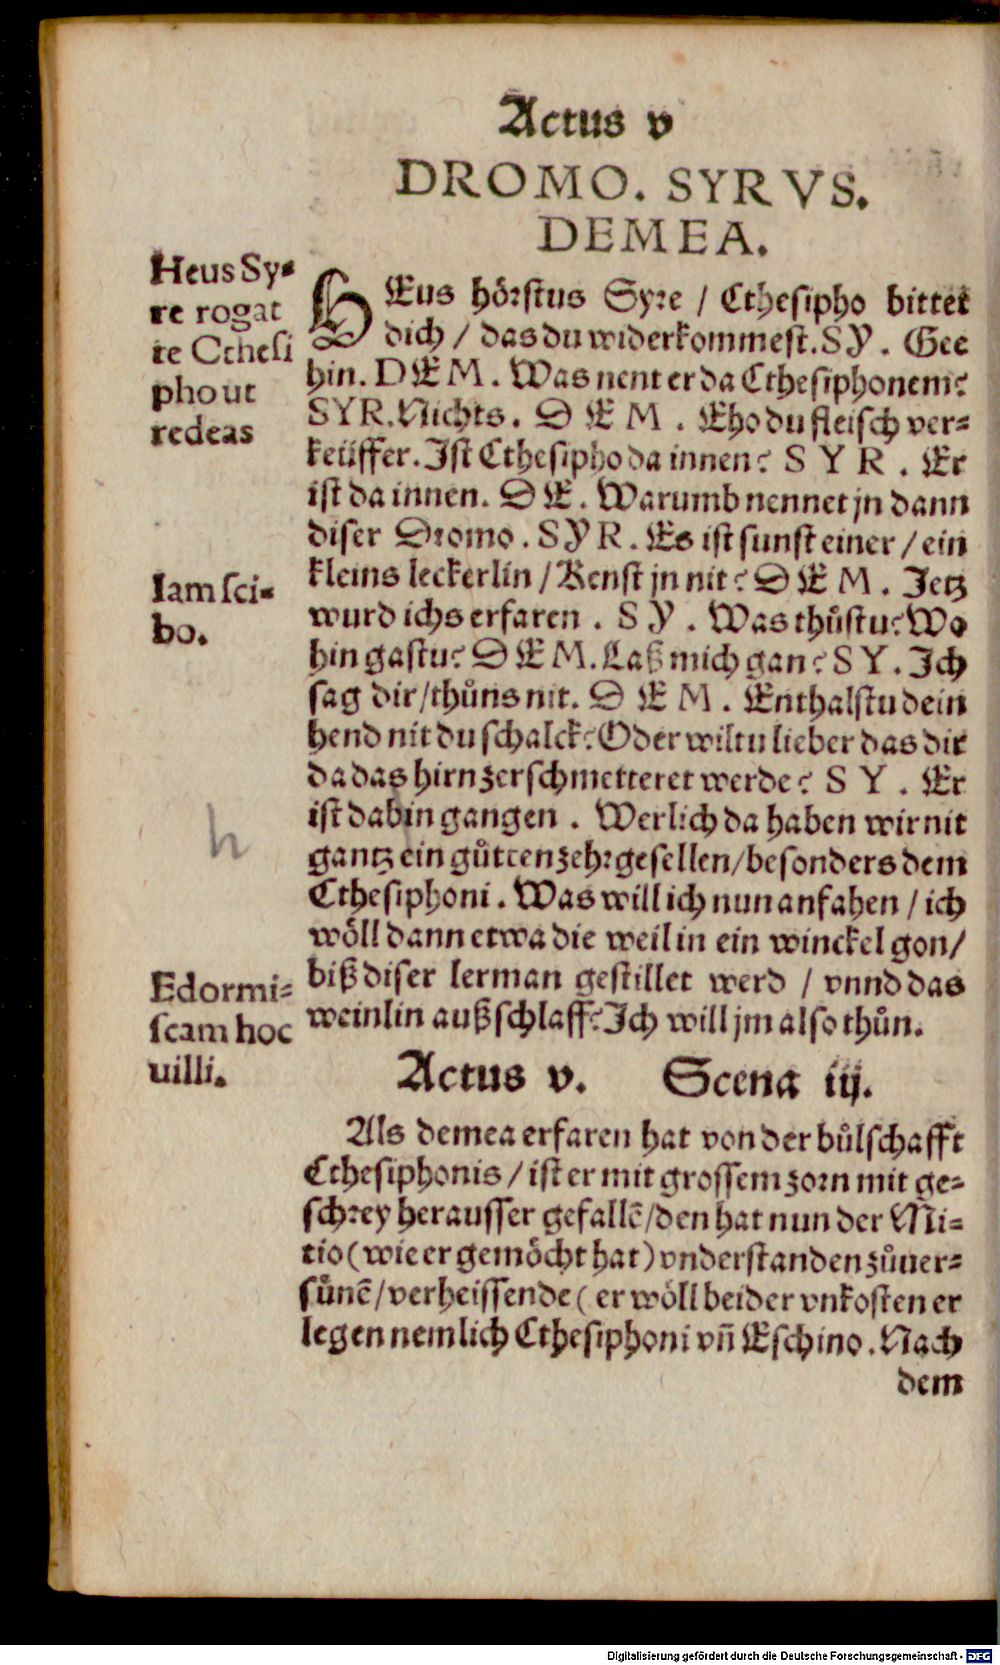 Actus v
DROMO. SYRVS.
DEMEA.
Heus Sy-
re rogat
te Cthesi
pho ut
redeas
HEus hörstus Syre / Cthesipho bittet
dich / das du widerkommest. SY. Gee
hin. DEM. Was nent er da Cthesiphonem?
SYR. Nichts. DEM. Eho du fleisch ver-
keüffer. Ist Cthesipho da innen? SYR. Er
ist da innen. DE. Warumb nennet jn dann
diser Dromo. SYR. Es ist sunst einer / ein
kleins leckerlin / Kenst jn nit? DEM. Jetz
Iam sci-
bo.
wurd ichs erfaren. SY. Was thůstu? Wo
hin gastu? DEM. Laß mich gan? SY. Ich
sag dir / thůns nit. DEM. Enthalstu dein
hend nit du schalck? Oder wiltu lieber das dir
da das hirn zerschmetteret werde? SY. Er
ist dahin gangen. Werlich da haben wir nit
h
gantz ein gůtten zehrgesellen / besonders dem
Cthesiphoni. Was will ich nun anfahen / ich
wöll dann etwa die weil in ein winckel gon /
biß diser lerman gestillet werd / vnnd das
weinlin außschlaff? Ich will jm also thůn.
Edormi-
scam hoc
uilli.
Actus v. Scena iij.
Als demea erfaren hat von der bůlschafft
Cthesiphonis / ist er mit grossem zorn mit ge-
schrey herausser gefallē / den hat nun der Mi-
tio (wie er gemöcht hat) vnderstanden zůuer-
sůnē / verheissende (er wöll beider vnkosten er
legen nemlich Cthesiphoni vñ Eschino. Nach
dem
Digitalisierung gefördert durch die Deutsche Forschungsgemeinschaft - DFG